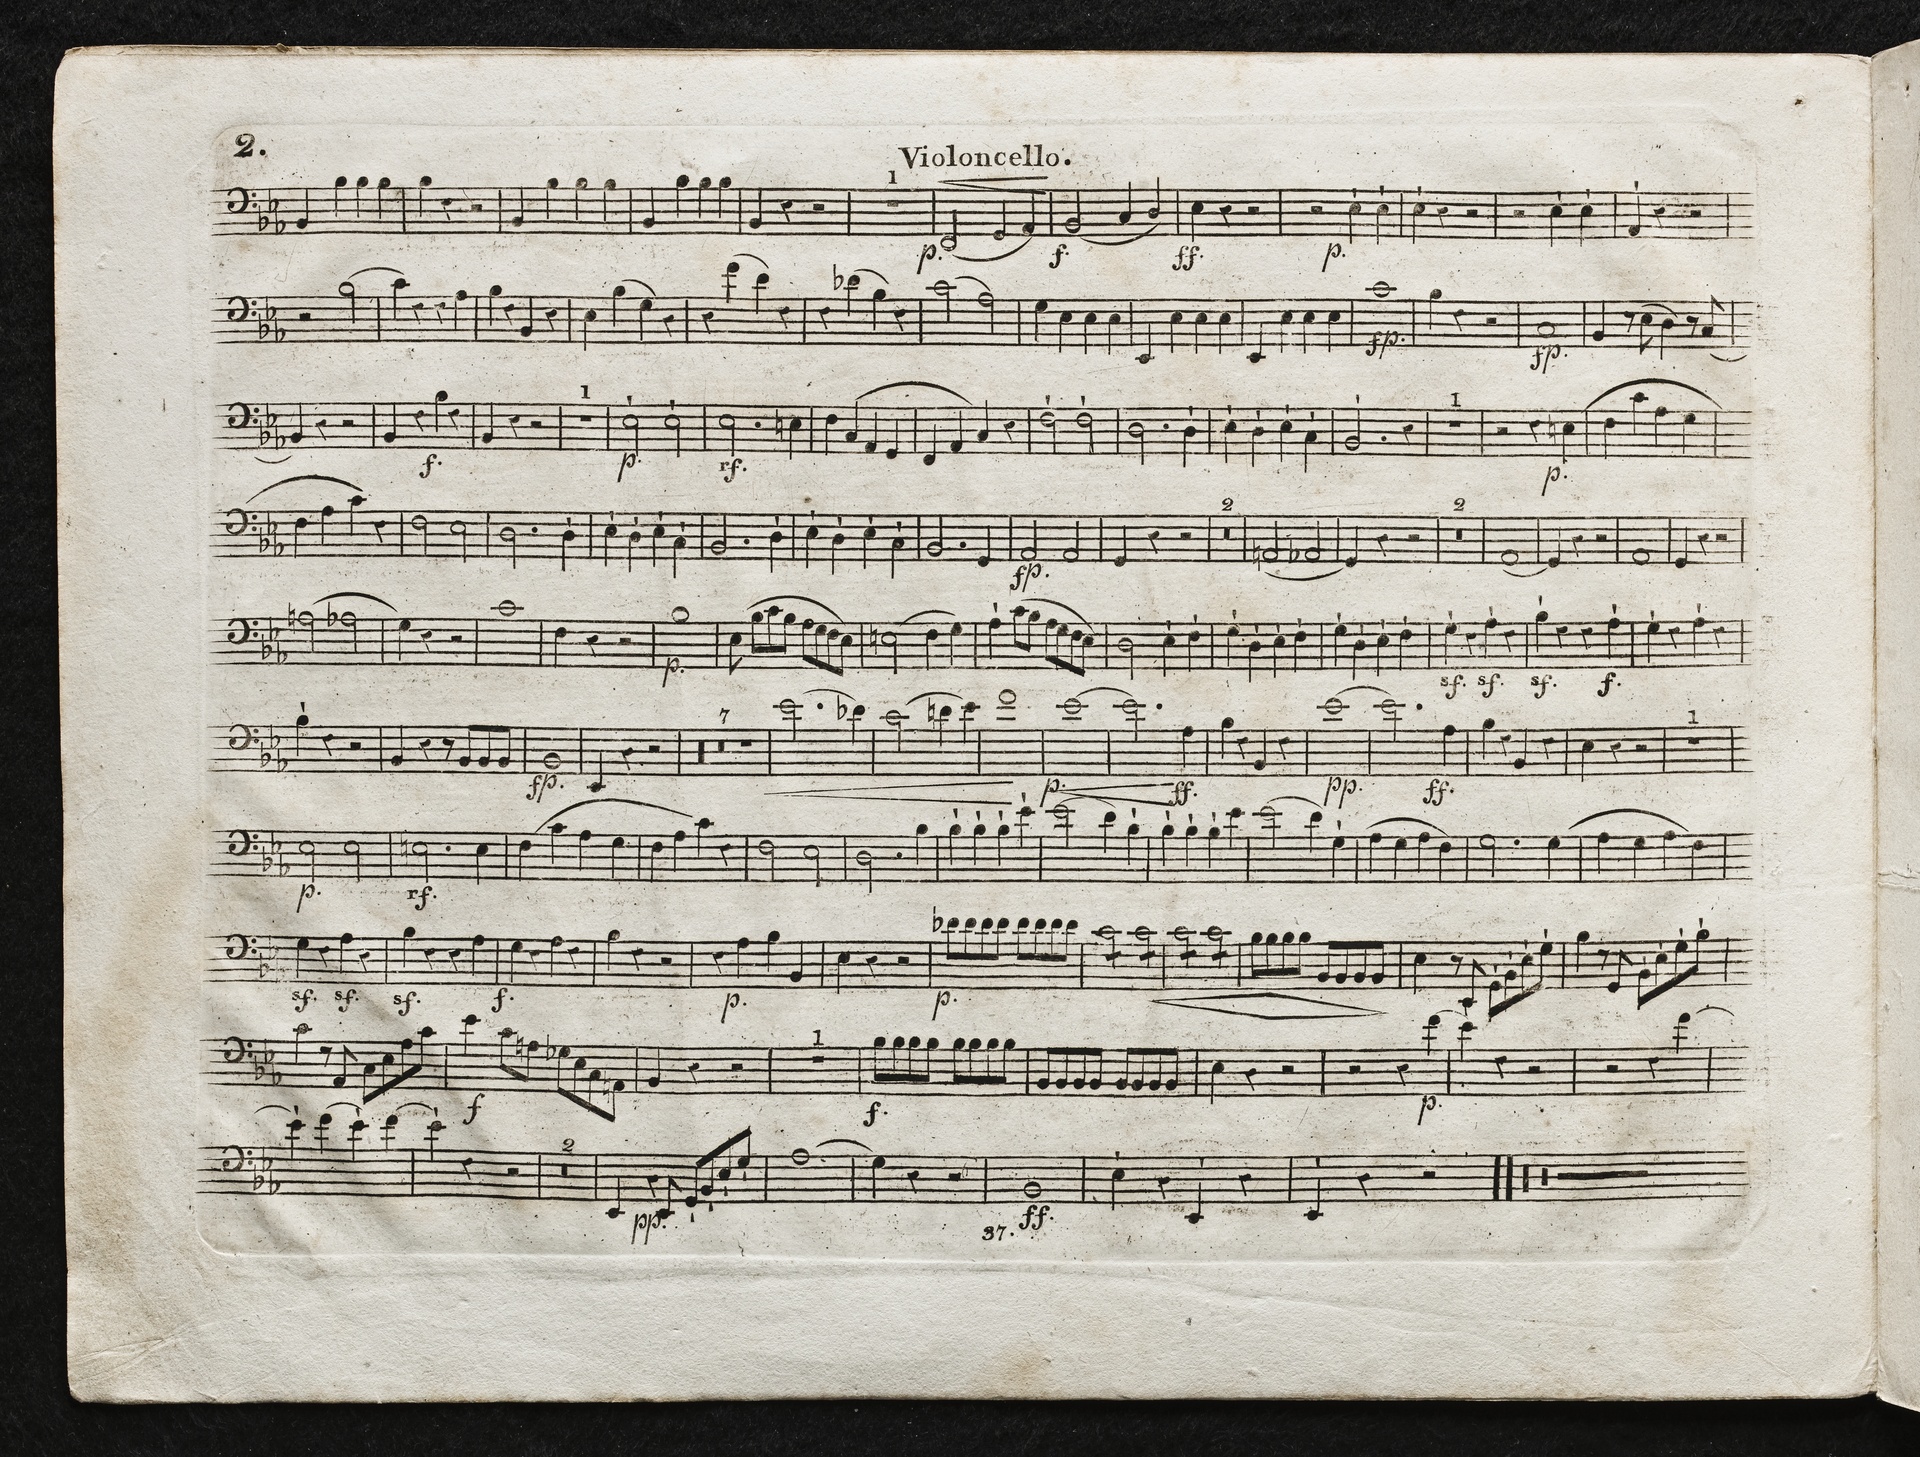 2.
Violoncello.
1
p. f. ff. p.
fp. fp.
1 1
f. p. rf. p.
2 2
fp.
p. sf. sf. sf. f.
7 1
fp. p. ff. pp. ff.
p. rf.
sf. sf. sf. f. p. p.
1
f f. p.
2
pp. ff.
37.